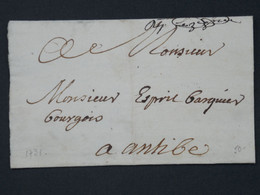 A Monsieur
Monsieur Esprit Gazquier
bourgois
a antibe
1731
50